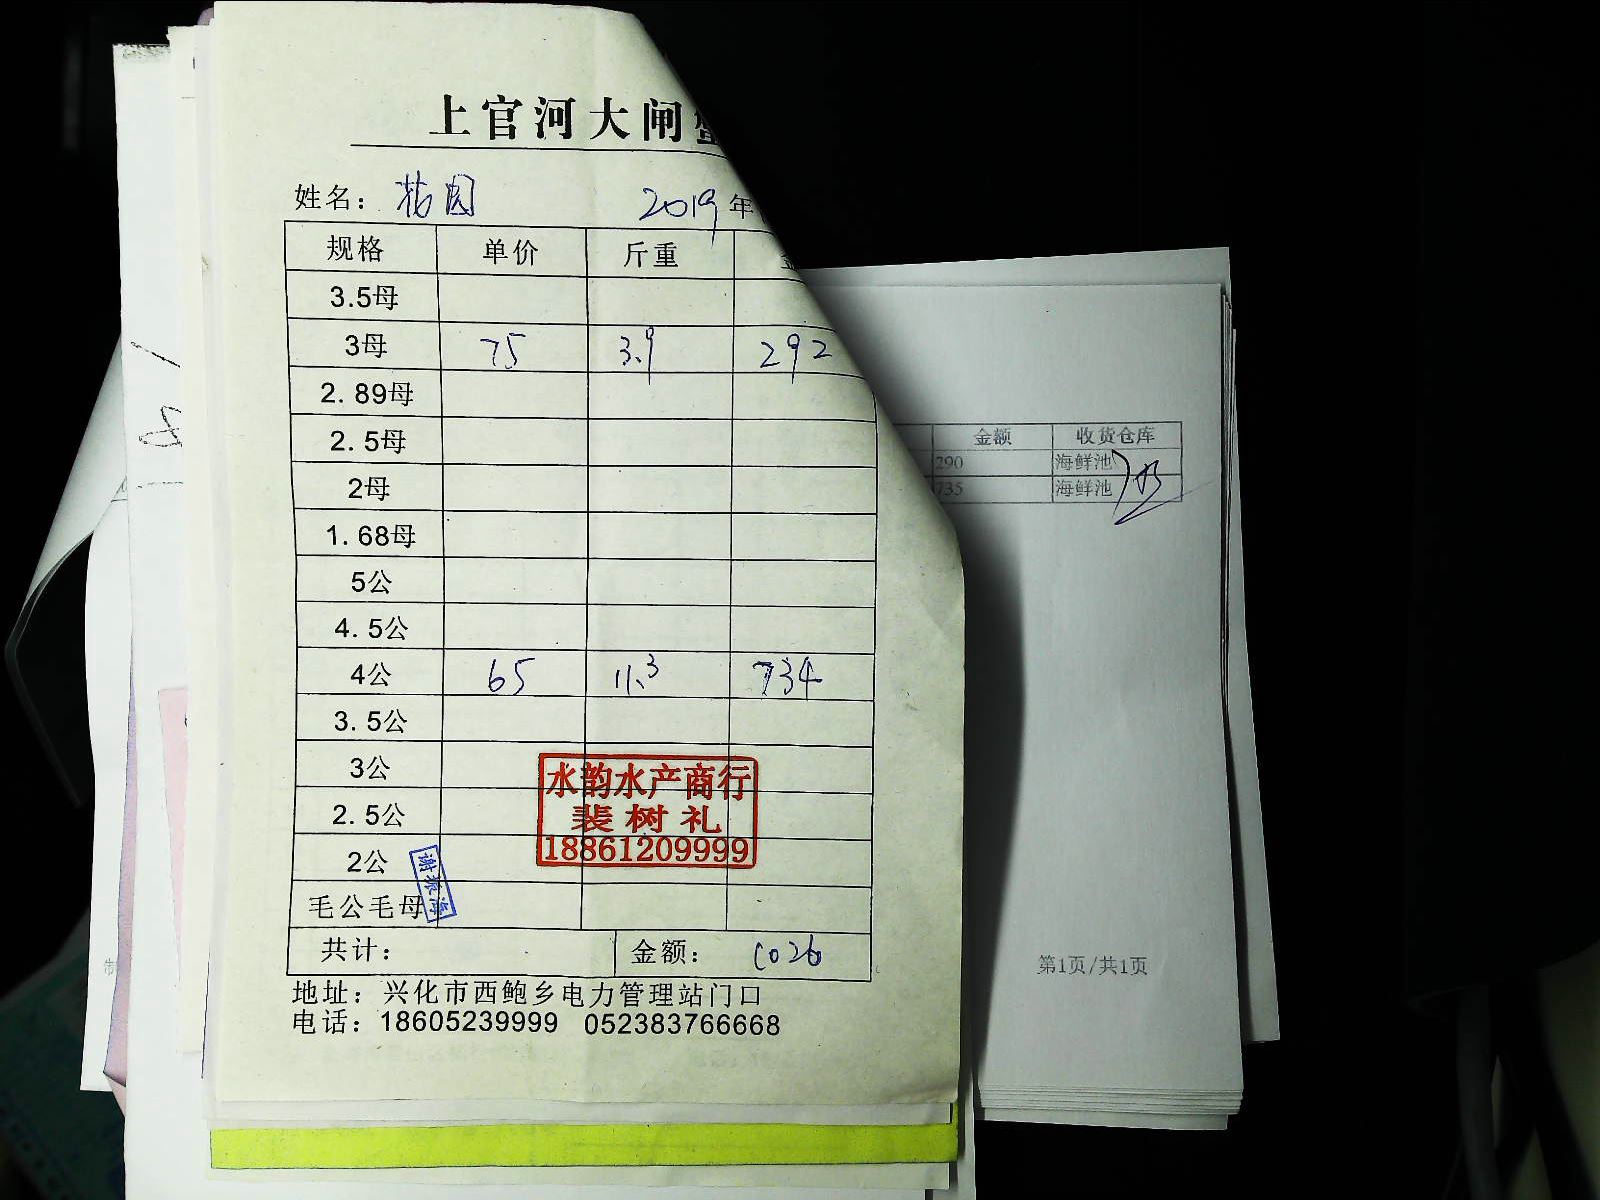 上官河大闸
姓名： 桔园 2019年
规格 单价 斤重
3.5母
3母 75 3.9 292
2.89母
2.5母
2母
1.68母
5公
4.5公
4公 65 11.3 734
3.5公
3公
2.5公
2公
毛公毛母
共计： 金额： 1026
地址：兴化市西鲍乡电力管理站门口
电话：18605239999 052383766668
水韵水产商行
裴树礼
18861209999
谢振海
金额 收货仓库
290 海鲜池
735 海鲜池
第1页/共1页